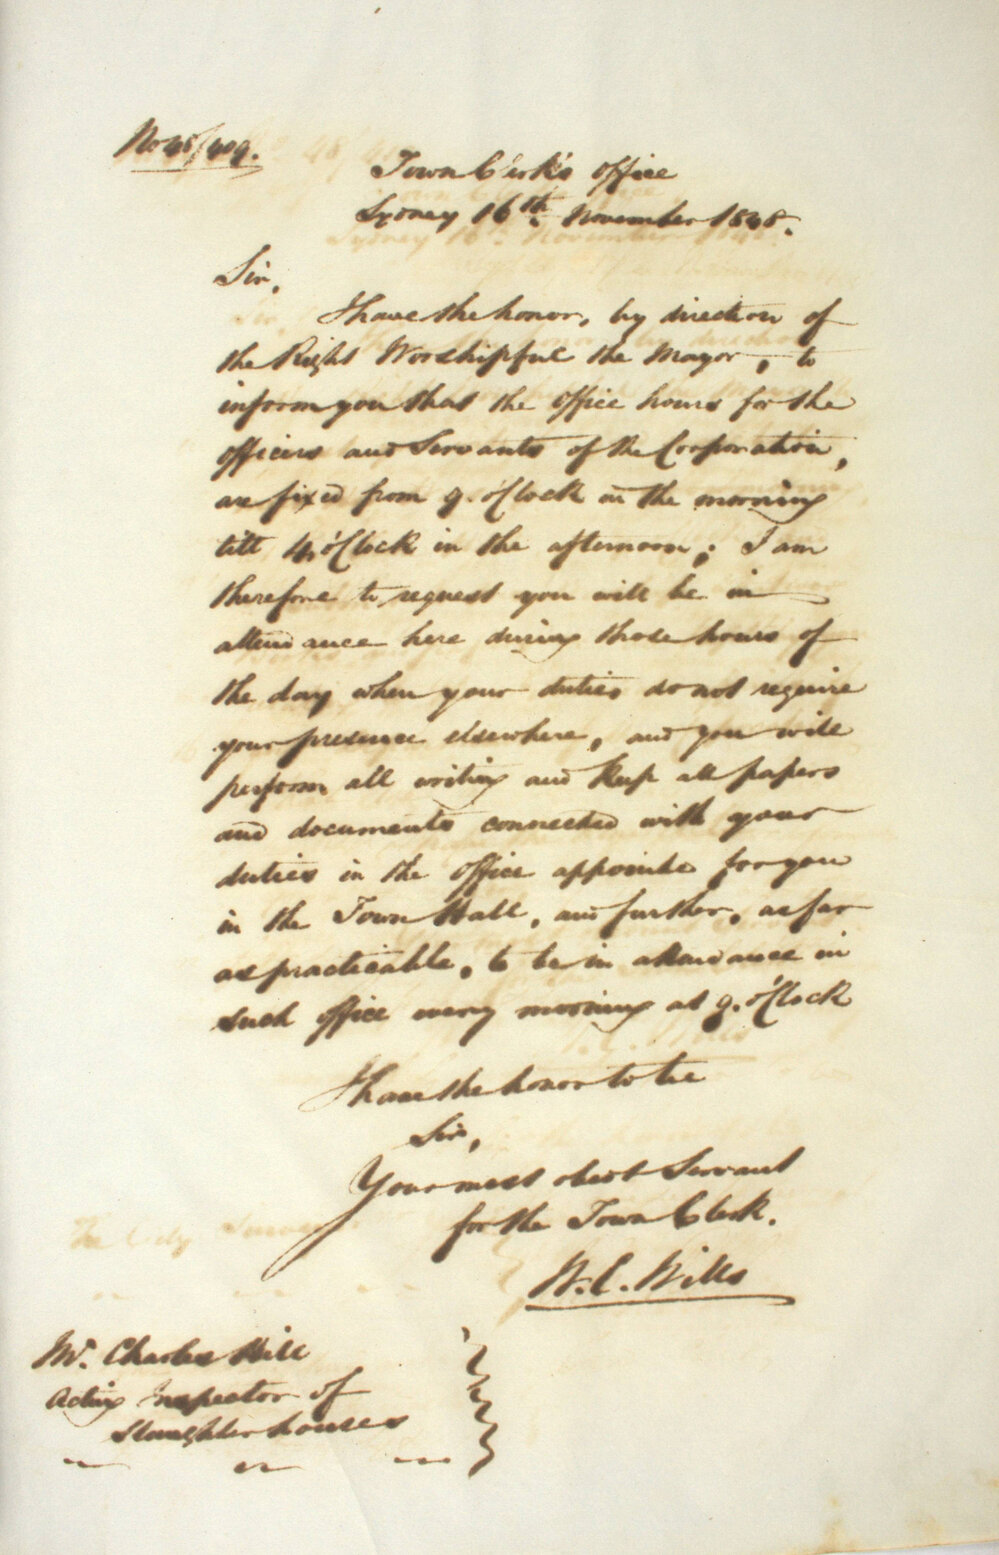 No 48/409.
Town Clerk's Office
Sydney 16th November 1848.
Sir,
I have the honor, by direction of
the Right Worshipful the Mayor, to
inform you that the office hours for the
officers and Servants of the Corporation,
are fixed from 9. o'Clock in the morning
till 4, o'Clock in the afternoon; I am
therefore to request you will be in
attendance here during those hours of
the day when your duties do not require
your presence elsewhere, and you will
perform all writing and keep all papers
and documents connected with your
duties in the office appointed for you
in the Town Hall, and further, as far
as practicable, to be in attendance in
such office every morning at 9. o'Clock
I have the honor to be
Sir,
Your most obedt Servant
for the Town Clerk.
W. C. Wills
Mr. Charles Hill
Acting Inspector of
Slaughterhouses